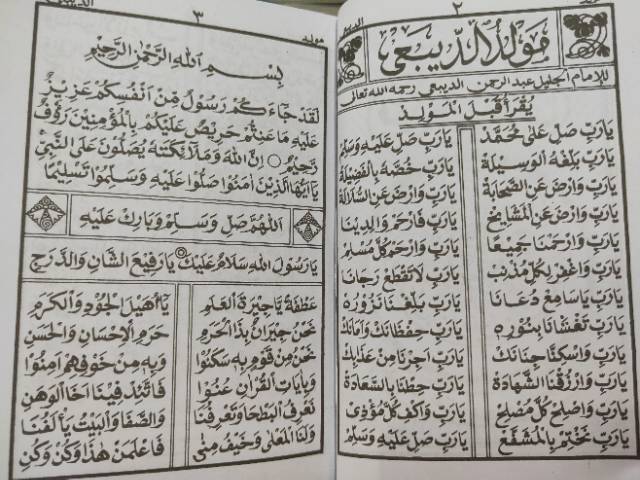 ٢
مَوْلِدُ الدِّيْبَعِيْ
للامام الجليل عبد الرحمن الديبعي رحمه الله تعالى
يُقْرَأُ قَبْلَ الْمَوْلِدِ
يَارَبِّ صَلِّ عَلَى مُحَمَّدْ يَارَبِّ صَلِّ عَلَيْهِ وَسَلِّمْ
يَارَبِّ بَلِّغْهُ الْوَسِيْلَةْ يَارَبِّ خُصَّهُ بِالْفَضِيْلَةْ
يَارَبِّ وَارْضَ عَنِ الصَّحَابَةْ يَارَبِّ وَارْضَ عَنِ السُّلَالَةْ
يَارَبِّ وَارْضَ عَنِ الْمَشَايِخْ يَارَبِّ فَارْحَمْ وَالِدِيْنَا
يَارَبِّ وَارْحَمْنَا جَمِيْعًا يَارَبِّ وَارْحَمْ كُلَّ مُسْلِمْ
يَارَبِّ وَاغْفِرْ لِكُلِّ مُذْنِبْ يَارَبِّ لَاتَقْطَعْ رَجَانَا
يَارَبِّ يَاسَامِعْ دُعَانَا يَارَبِّ بَلِّغْنَا نَزُوْرُهْ
يَارَبِّ تَغْشَانَا بِنُوْرِهْ يَارَبِّ حِفْظَانَكْ وَاَمَانَكْ
يَارَبِّ وَاسْكِنَّا جِنَانَكْ يَارَبِّ اَجِرْنَا مِنْ عَذَابِكْ
يَارَبِّ وَارْزُقْنَا الشَّهَادَةْ يَارَبِّ حِطْنَا بِالسَّعَادَةْ
يَارَبِّ وَاصْلِحْ كُلَّ مُصْلِحْ يَارَبِّ وَاكْفِ كُلَّ مُؤْذِيْ
يَارَبِّ نَخْتِمْ بِالْمُشَفَّعْ يَارَبِّ صَلِّ عَلَيْهِ وَسَلِّمْ
مولد ٣ الديبعي
بِسْمِ اللهِ الرَّحْمٰنِ الرَّحِيْمِ
لَقَدْ جَاءَكُمْ رَسُوْلٌ مِنْ اَنْفُسِكُمْ عَزِيْزٌ
عَلَيْهِ مَاعَنِتُّمْ حَرِيْصٌ عَلَيْكُمْ بِالْمُؤْمِنِيْنَ رَؤُفٌ
رَحِيْمٌ ○ اِنَّ اللهَ وَمَلَآئِكَتَهُ يُصَلُّوْنَ عَلَى النَّبِيِّ
يَااَيُّهَا الَّذِيْنَ اٰمَنُوْا صَلُّوْا عَلَيْهِ وَسَلِّمُوْا تَسْلِيْمًا
اَللّٰهُمَّ صَلِّ وَسَلِّمْ وَبَارِكْ عَلَيْهِ
يَارَسُوْلَ اللهِ سَلَامٌ عَلَيْكْ ○ يَارَفِيْعَ الشَّانِ وَالدَّرَجِ
عَطْفَةً يَّاجِيْرَةَ الْعَلَمِ يَااُهَيْلَ الْجُوْدِ وَالْكَرَمِ
نَحْنُ جِيْرَانٌ بِذَا الْحَرَمِ حَرَمِ الْاِحْسَانِ وَالْحَسَنِ
نَحْنُ مِنْ قَوْمٍ بِهٖ سَكَنُوْا وَبِهٖ مِنْ خَوْفِهِمْ اَمِنُوْا
وَبِاٰيَاتِ الْقُرْاٰنِ عُنُوْا فَاتَّئِدْ فِيْنَا اَخَا الْوَهَنِ
نَعْرِفُ الْبَطْحَا وَتَعْرِفُنَا وَالصَّفَا وَالْبَيْتُ يَأْلَفُنَا
وَلَنَا الْمَعْلٰى وَخَيْفُ مِنٰى فَاعْلَمَنْ هٰذَا وَكُنْ وَكُنِ